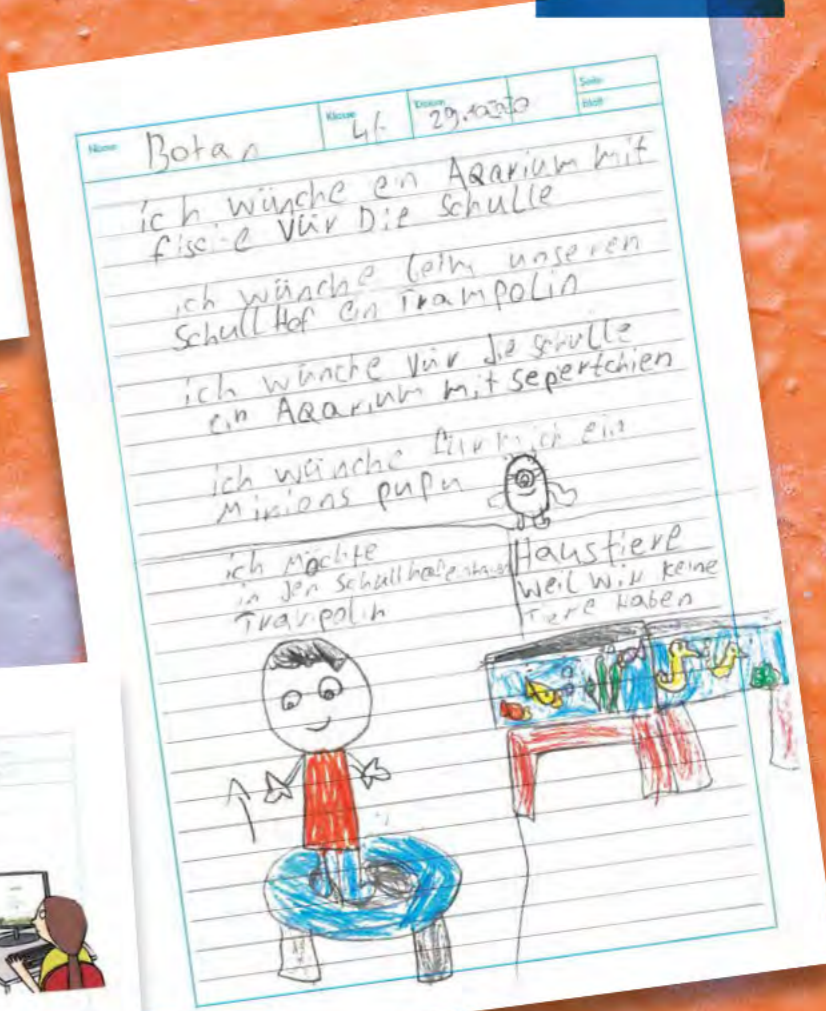 Name Botan Klasse 4/ Datum 29.10.2020 Seite
Blatt
ich wünche ein Aqarium mit
vür Die Schulle
ich wünche unseren
SchullHof ein Trampolin
ich wünche vür die schulle
ein Aqarium mit sepertchien
ich wünche für mich ein
Minions pupu
ich Möchte
in den Schull
Trampolin
Haustiere
weil wir keine
Tere Haben